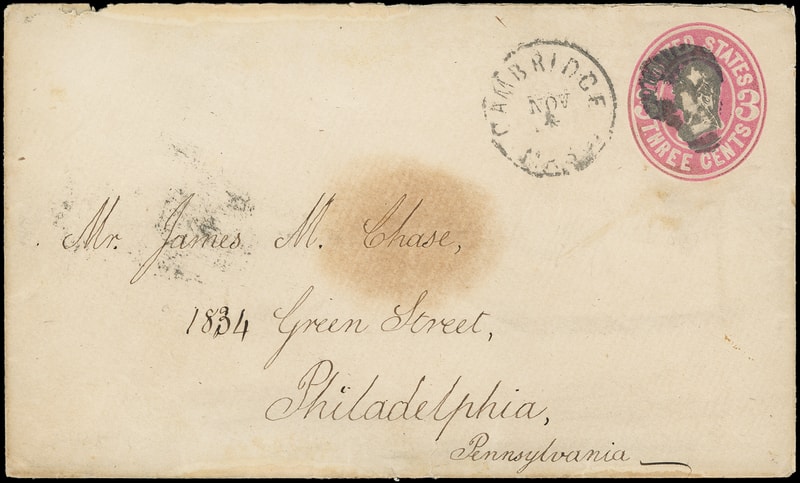 CAMBRIDGE
NOV
4
MASS
UNITED STATES
3 3
THREE CENTS
Mr. James M. Chase,
1834 Green Street,
Philadelphia,
Pennsylvania